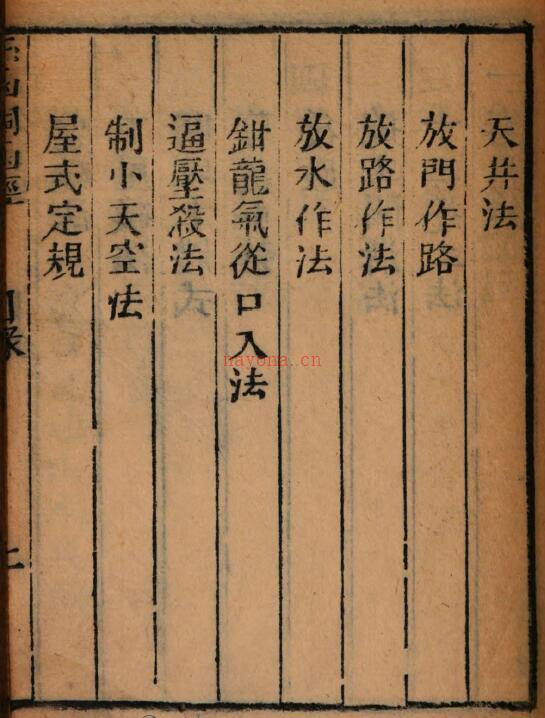 天井法
放門作路
放路作法
放水作法
鉗龍氣從口入法
逼壓殺法
制小天空法
屋式定規
目录
nayona.cn